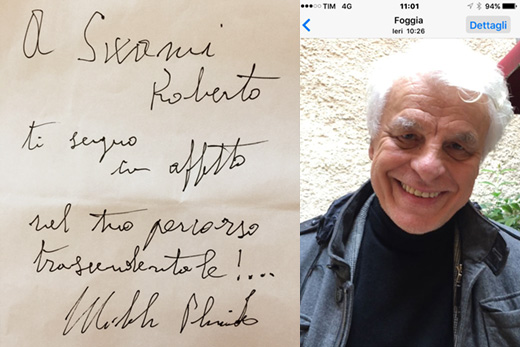 A Swami
Roberto
ti seguo
con affetto
nel tuo percorso
trascendentale!...
TIM 4G 11:01 94%
Foggia
Ieri 10:26
Dettagli